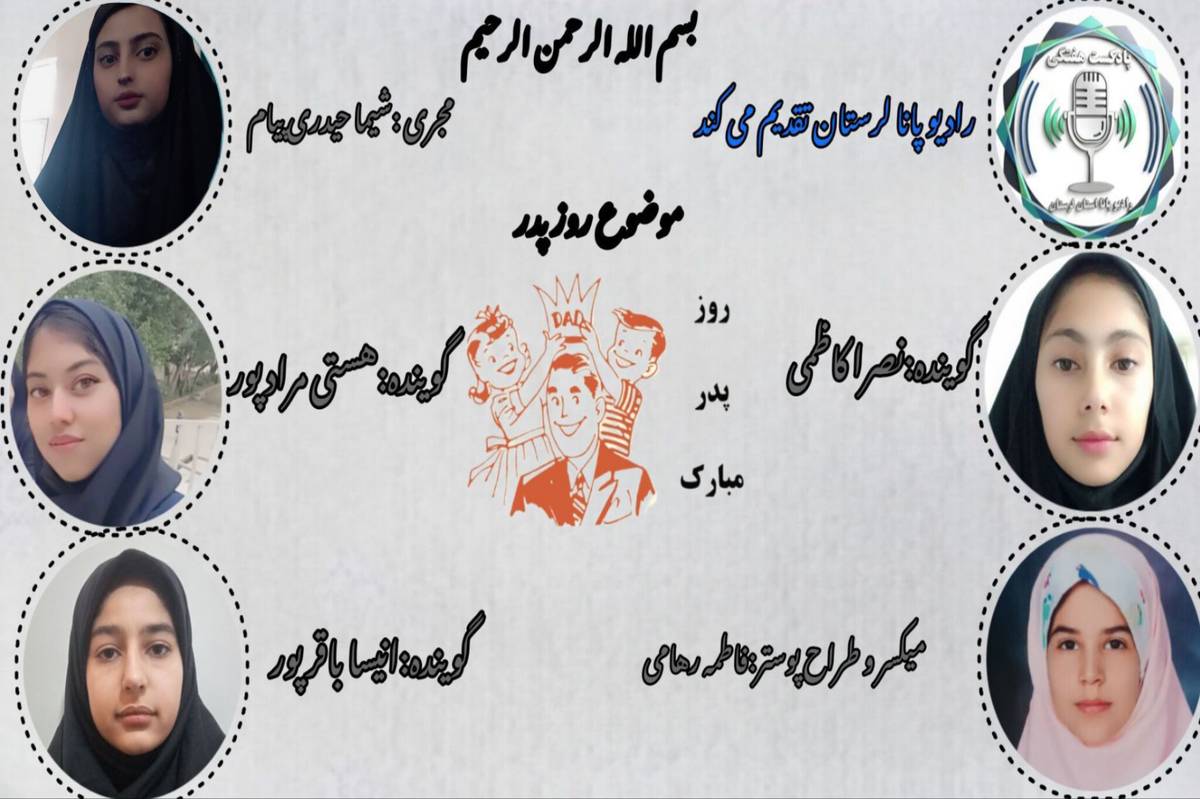 بسم الله الرحمن الرحیم
پادکست هفتگی
رادیو پانا استان لرستان
رادیو پانا لرستان تقدیم می کند
مجری : شیما حیدری پیام
موضوع روز پدر
DAD
روز
پدر
مبارک
گوینده: نصرا کاظمی
گوینده: هستی مرادپور
گوینده: انیسا باقرپور
میکسر و طراح پوستر: فاطمه رهامی